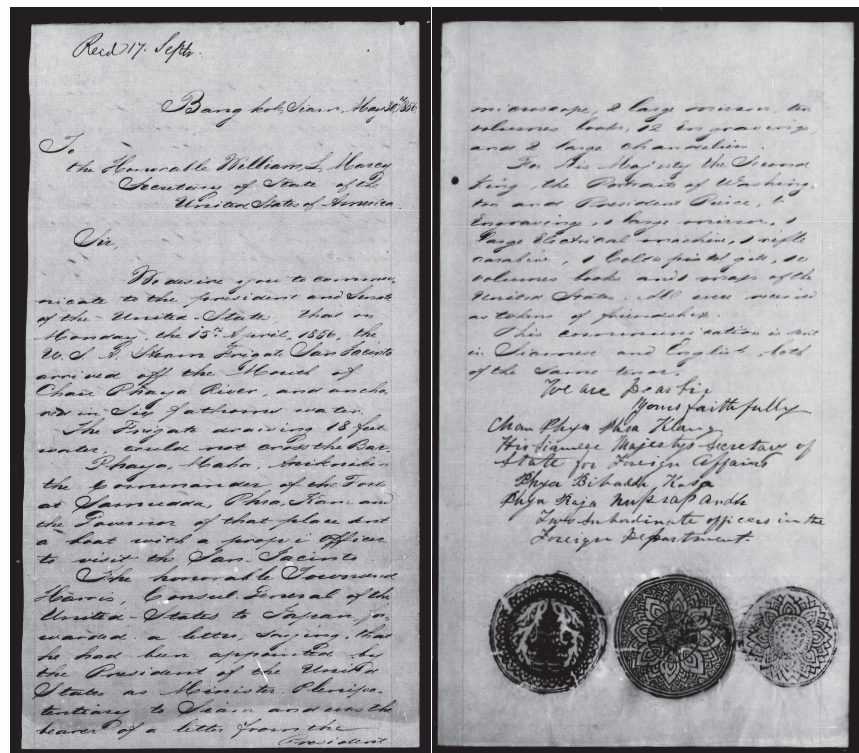 Recd 17. Septr.
Bangkok, Siam, May 30th 1856
To
the Honorable William L. Marcy
Secretary of State of the
United States of America.
Sir,
We desire you to commu-
nicate to the president and Senate
of the United-State that on
Monday, the 15th April, 1856, the
U. S. S. Steam Frigate San Jacinto
arrived off the Mouth of
Chau Phaya River, and ancho-
red in Six fathoms water.
The Frigate drawing 18 feet
water, could not cross the Bar.
Phaya, Maha,
the Commander of the Fort
at Samudda, Phra, Kan and
the Governor of that place sent
a boat with a proper Officer
to visit the San. Jacinto.
The honorable Townsend
Harris, Consul General of the
United-States to Japan for-
warded a letter, saying, that
he had been appointed by
the President of the United
States as Minister Plenipo-
tentiary to Siam and was the
bearer of a letter from the
President
microscope, 2 large mirrors, ten
volumes books, 12 Engravings,
and 2 large chandeliers.
For His Majesty the Second
King, the Portraits of Washing-
ton and President Peirce,
Engravings, 1 large mirror, 1
large Electrical machine, 1 rifle
carabine, 1 Colts pistol gilt,
volumes books and 1 maps of the
United States. All were received
as tokens of friendship.
This communication is sent
in Siamese and English both
of the same tenor.
We are Dear Sir
Yours faithfully
Chau Phya Phra Klang
His Siamese Majestys Secretary of
State for Foreign Affairs
Phya Bibaddh, Kosa
Phya Raja
Two Subordinate officers in the
Foreign Department.